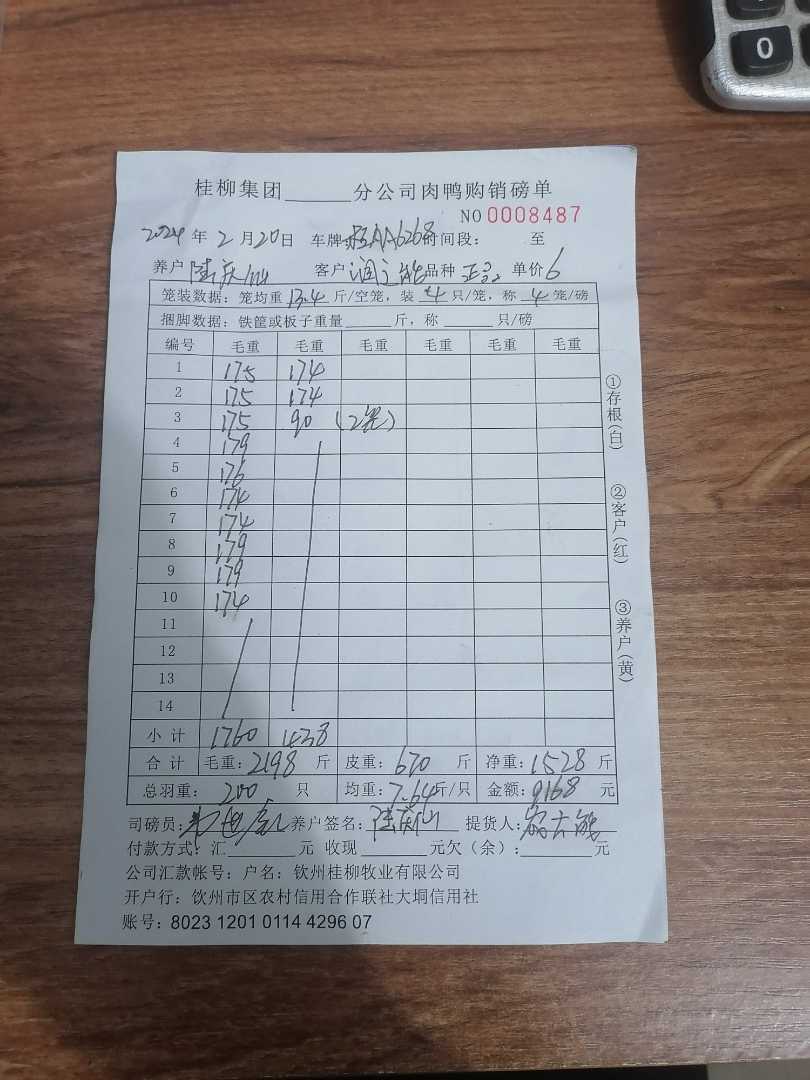 0
桂柳集团______分公司肉鸭购销磅单
NO 0008487
2024 年 2 月 20 日 车牌: AA6268 时间段: 至
养户 陆庆 客户 润之能 品种 单价 6
笼装数据: 笼均重 13.4 斤/空笼, 装 4 只/笼, 称 4 笼/磅
捆脚数据: 铁筐或板子重量______斤, 称______只/磅
编号 毛重 毛重 毛重 毛重 毛重 毛重
1 175 174
2 175 174
3 175 90 (2笼)
4 179
5 176
6 174
7 174
8 179
9 179
10 174
11
12
13
14
小计 1760 438
合计 毛重: 2198 斤 皮重: 670 斤 净重: 1528 斤
总羽重: 200 只 均重: 7.64 斤/只 金额: 9168 元
司磅员: 养户签名: 陆庆 提货人:
付款方式: 汇______元 收现______元欠(余): ______元
公司汇款帐号: 户名: 钦州桂柳牧业有限公司
开户行: 钦州市区农村信用合作联社大垌信用社
账号: 8023 1201 0114 4296 07
①存根(白)
②客户(红)
③养户(黄)